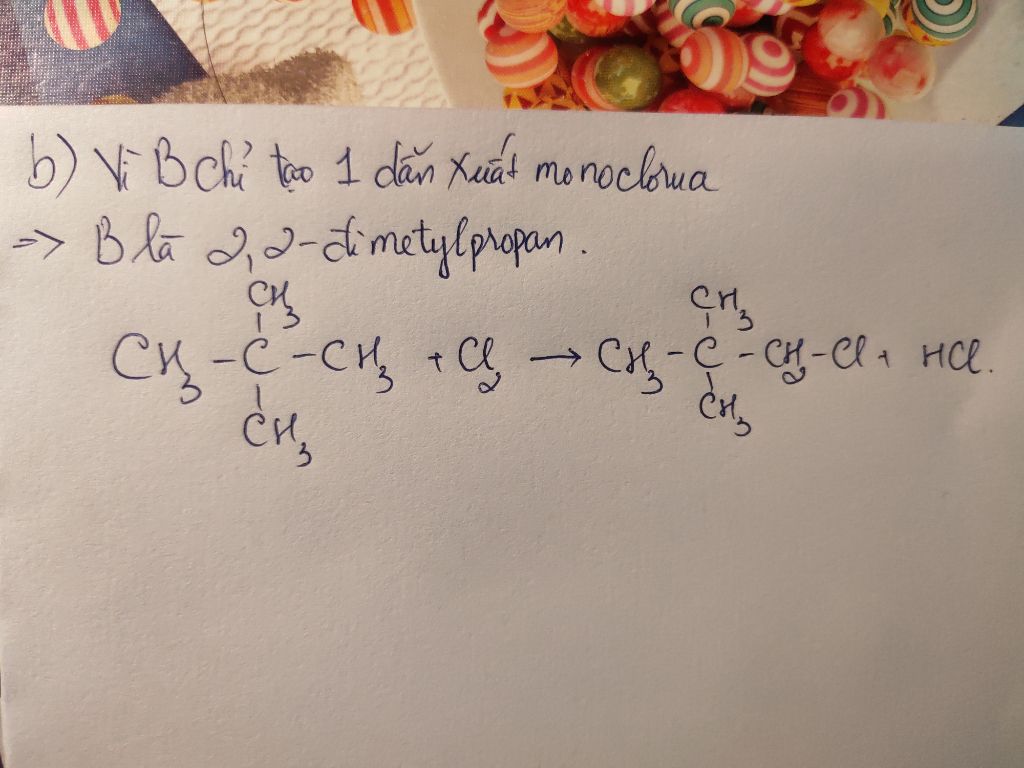 b) Vì B chỉ tạo 1 dẫn xuất monoclorua
=> B là 2,2-đimetylpropan.
CH3 CH3
CH3 - C - CH3 + Cl2 → CH3 - C - CH2 - Cl + HCl.
CH3 CH3